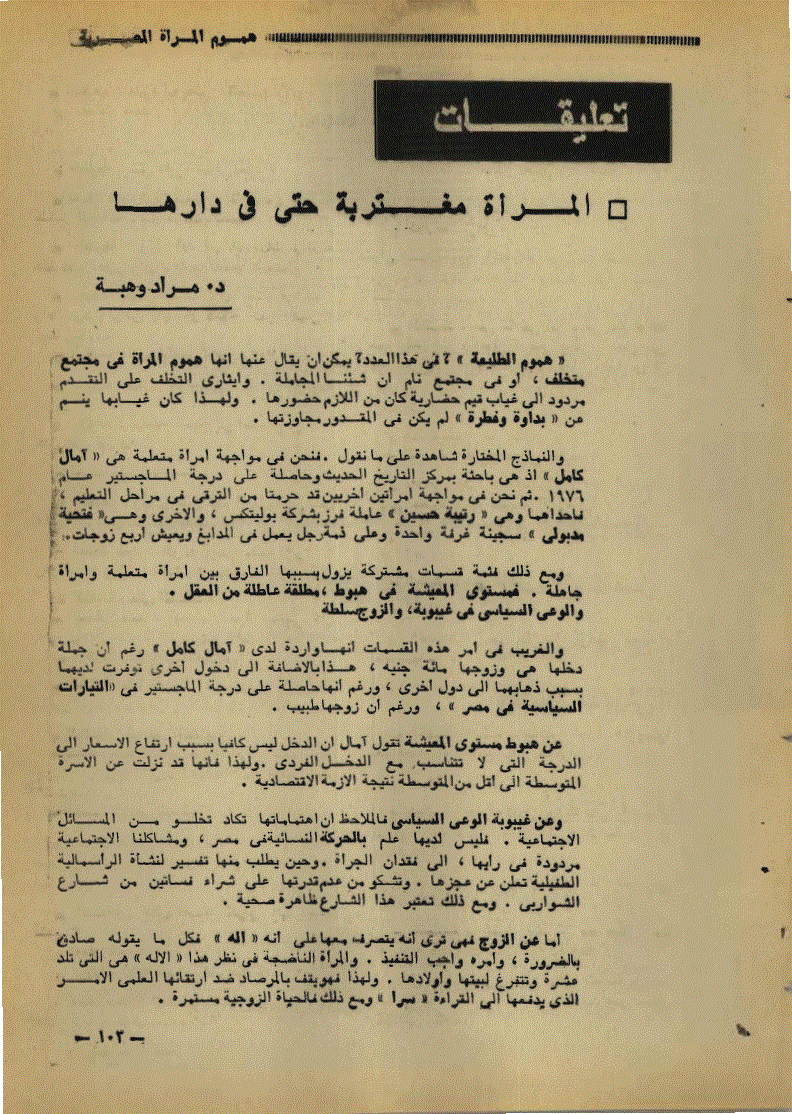 همـوم المـرأة المصـرية
تعليقـــات
□ المـــرأة مغـــتربة حتى فى دارهـــا
د. مـراد وهبـة
« هموم الطليعة » ؟ فى هذا العدد؟ يمكن ان يقال عنها انها هموم المرأة فى مجتمع
متخلف ، أو فى مجتمع نام ان شئنا المجاملة . وايثارى التخلف على التقدم
مردود الى غياب قيم حضارية كان من اللازم حضورها . ولهذا كان غيابها ينم
عن « بداوة وفطرة » لم يكن فى المقدور مجاوزتها .
والنماذج المختارة شاهدة على ما نقول . فنحن فى مواجهة امرأة متعلمة هى « آمال
كامل » اذ هى باحثة بمركز التاريخ الحديث وحاصلة على درجة الماجستير عام
١٩٧٦ . ثم نحن فى مواجهة امرأتين أخريين قد حرمتا من الترقى فى مراحل التعليم ،
فاحداهما وهى « رتيبة حسين » عاملة فرز بشركة بوليتكس ، والاخرى وهى « فتحية
مدبولى » سجينة غرفة واحدة وعلى ذمة رجل يعمل فى المدابغ ويعيش أربع زوجات .
ومع ذلك فثمة قسمات مشتركة يزول بسببها الفارق بين امرأة متعلمة وامرأة
جاهلة . فمستوى المعيشة فى هبوط ، مطلقة عاطلة من العقل .
والوعى السياسى فى غيبوبة، والزوج سلطة
والغريب فى أمر هذه القسمات أنها واردة لدى « آمال كامل » رغم أن جملة
دخلها هى وزوجها مائة جنيه ، هذا بالاضافة الى دخول أخرى توفرت لديهما
بسبب ذهابهما الى دول أخرى ، ورغم أنها حاصلة على درجة الماجستير فى « التيارات
السياسية فى مصر » ، ورغم أن زوجها طبيب .
عن هبوط مستوى المعيشة تقول آمال ان الدخل ليس كافيا بسبب ارتفاع الاسعار الى
الدرجة التى لا تتناسب مع الدخل الفردى . ولهذا فانها قد نزلت عن الاسرة
المتوسطة الى أقل من المتوسطة نتيجة الازمة الاقتصادية .
وعن غيبوبة الوعى السياسى فالملاحظ ان اهتماماتها تكاد تخلو من المسائل
الاجتماعية . فليس لديها علم بالحركة النسائية فى مصر ، ومشاكلنا الاجتماعية
مردودة فى رأيها ، الى فقدان الجرأة . وحين يطلب منها تفسير لنشأة الرأسمالية
الطفيلية تعلن عن عجزها . وتشكو من عدم قدرتها على شراء فساتين من شارع
الشواربى . ومع ذلك تعتبر هذا الشارع ظاهرة صحية .
أما عن الزوج فهى ترى أنه يتصرف معها على أنه « اله » فكل ما يقوله صادق
بالضرورة ، وأمره واجب التنفيذ . والمرأة الناضجة فى نظر هذا « الاله » هى التى تلد
عشرة وتتفرغ لبيتها وأولادها . ولهذا فهو يقف بالمرصاد ضد ارتقائها العلمى الامـر
الذى يدفعها الى القراءة « سرا » ومع ذلك فالحياة الزوجية مستمرة .
— ١٠٣ —